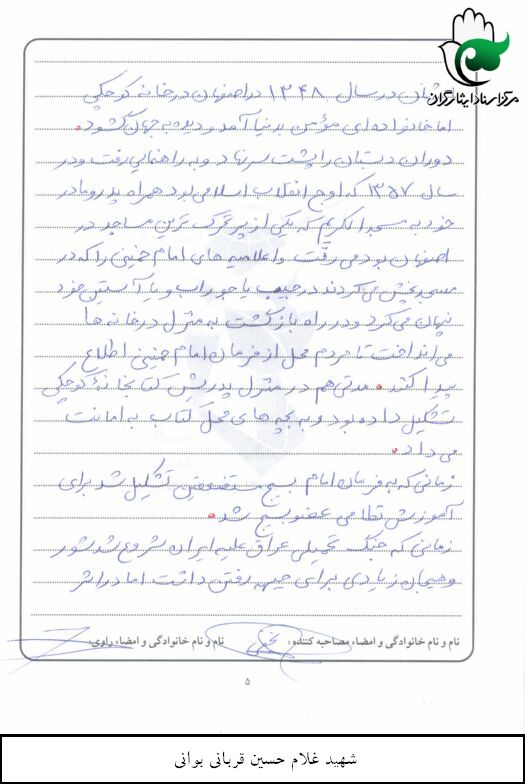 مرکز اسناد ایثارگران
ایشان در سال ۱۳۴۸ در اصفهان در خانه کوچکی
اما خانواده ای مؤمن به دنیا آمد و دیده به جهان گشود.
دوران دبستان را پشت سر نهاد و به راهنمایی رفت و در
سال ۱۳۵۷ که اوج انقلاب اسلامی بود همراه پدر و مادر
خود به مسجد الکریم که یکی از پر تحرک ترین مساجد در
اصفهان بود می رفت و اعلامیه های امام خمینی را که در
مسجد پخش می کردند در جیب یا جوراب و یا آستین خود
پنهان می کرد و در راه بازگشت به منزل در خانه ها
می انداخت تا مردم محل از فرمان امام خمینی اطلاع
پیدا کنند. مدتی هم در منزل پدریش کتابخانهٔ کوچکی
تشکیل داده بود و به بچه های محل کتاب به امانت
می داد.
زمانی که به فرمان امام بسیج مستضعفین تشکیل شد برای
آموزش نظامی عضو بسیج شد.
زمانی که جنگ تحمیلی عراق علیه ایران شروع شد شور
و هیجان زیادی برای جبهه رفتن داشت اما در اثر
نام و نام خانوادگی و امضاء مصاحبه کننده: نام و نام خانوادگی و امضاء راوی:
۵
شهید غلام حسین قربانی بوانی